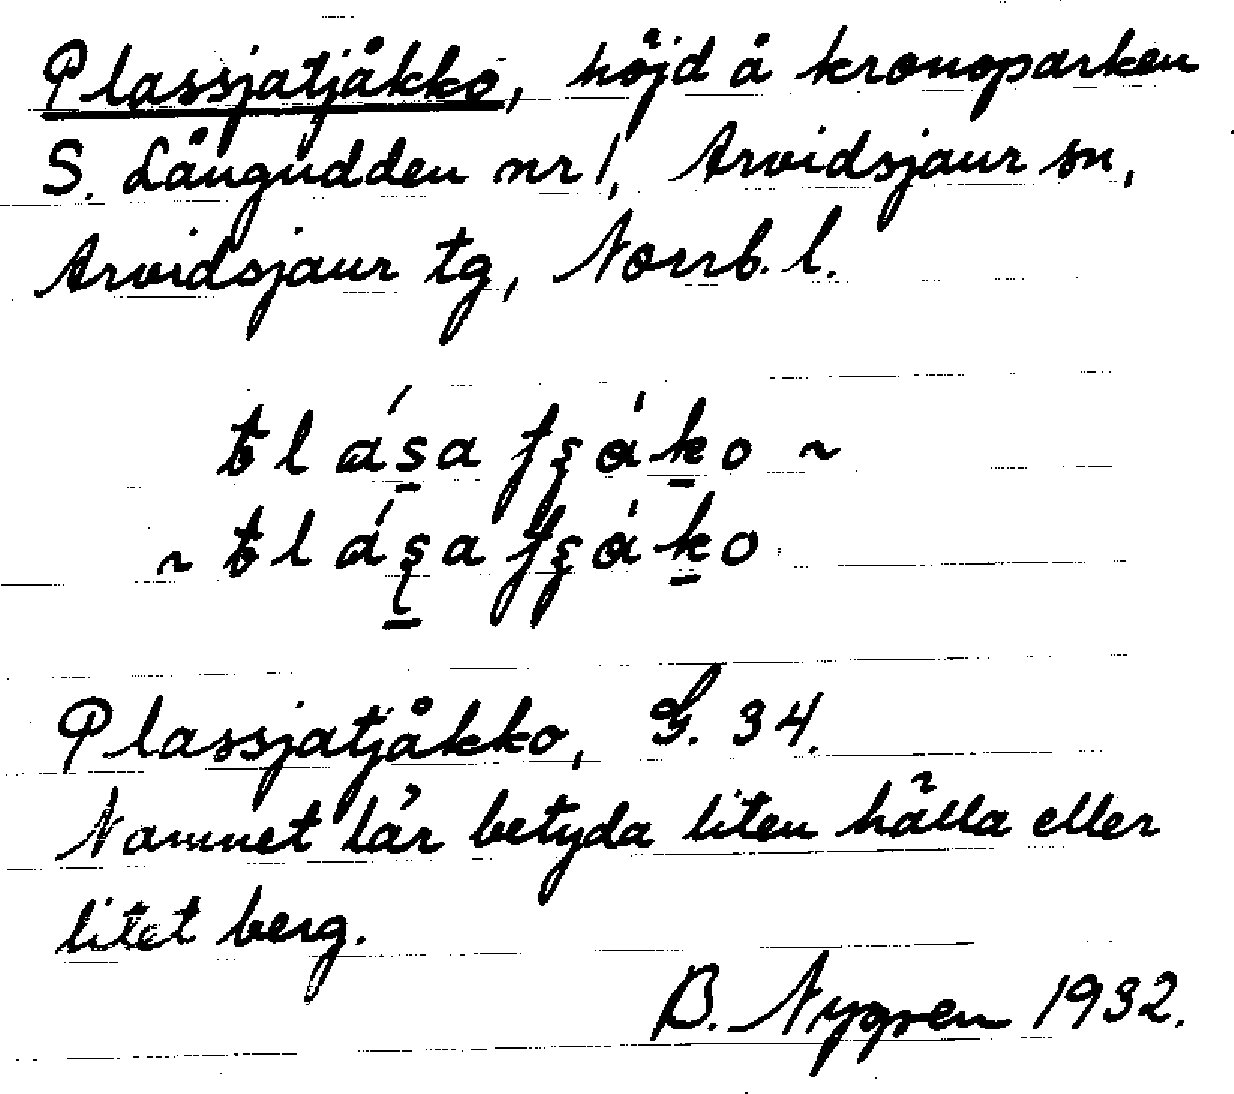 Plassjatjåkko, höjd å kronoparken
S. Långudden nr 1, Arvidsjaur sn,
Arvidsjaur tg, Norrb. l.
Plassjatjåkko, G. 34.
Namnet lär betyda liten hälla eller
litet berg.
B. Nygren 1932.